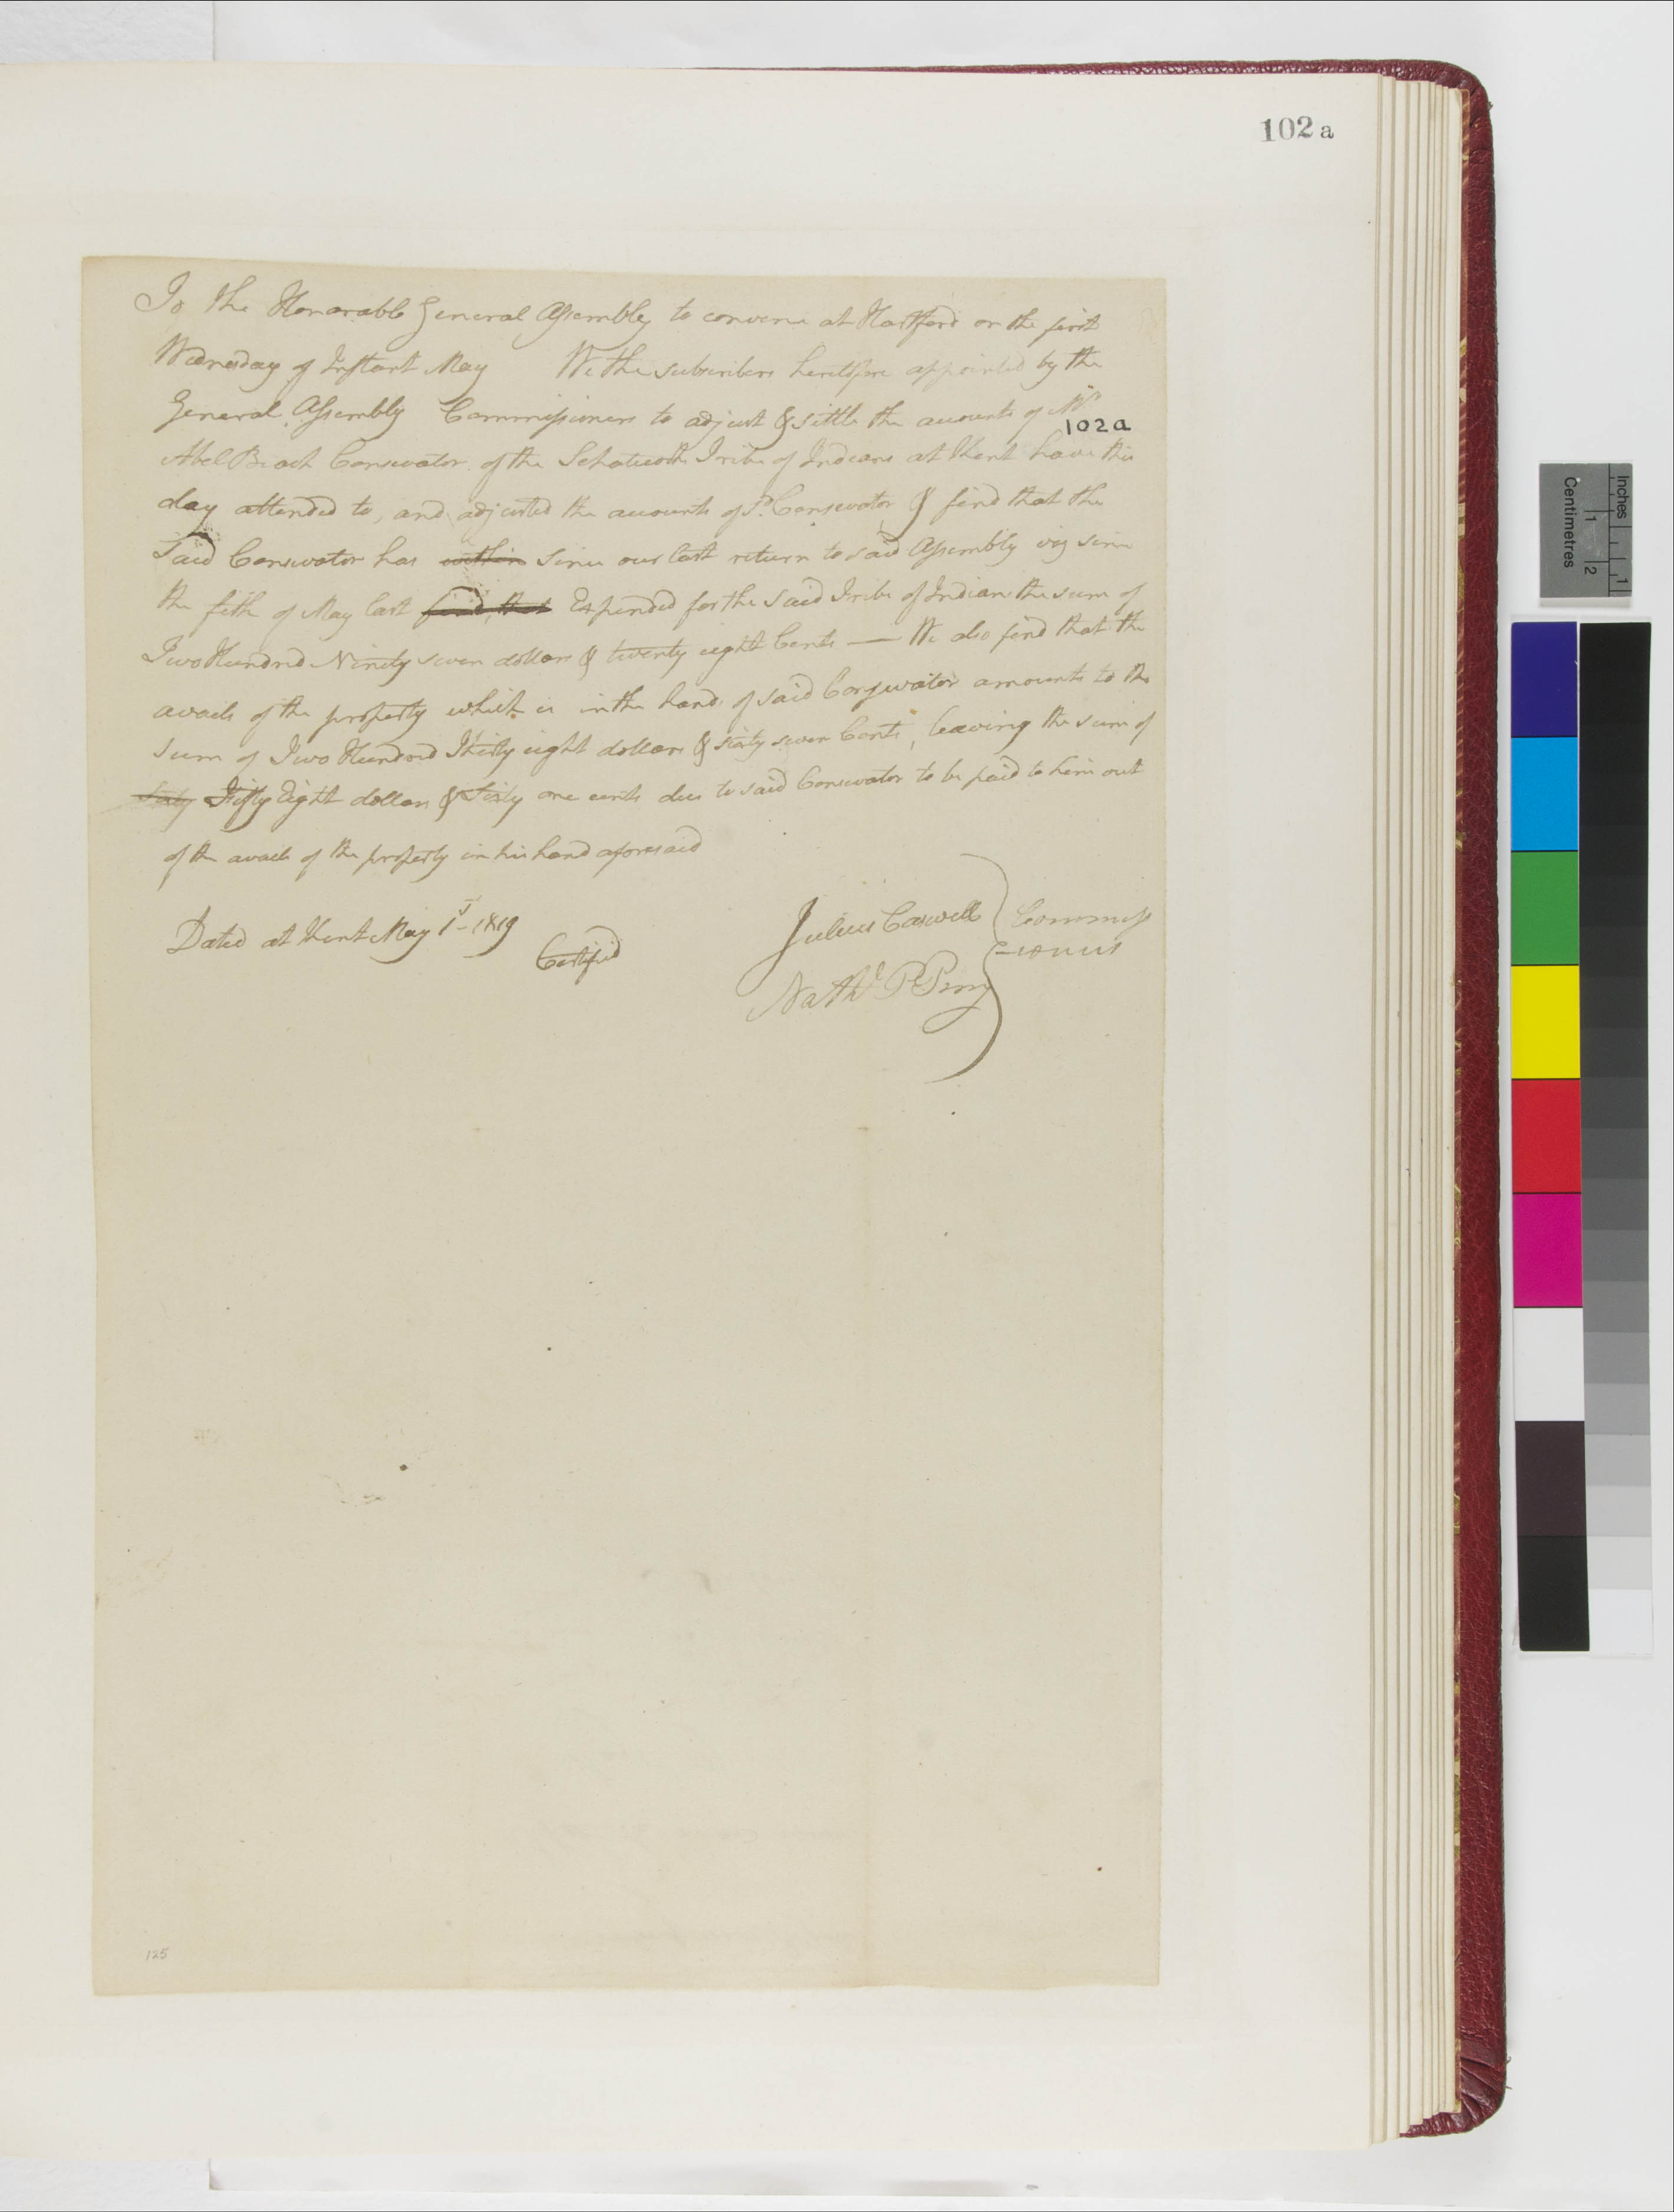 102 a
To the Honorable General Assembly to convene at Hartford on the first
Wednesday of Instant May We the subscribers heretofore appointed by the
General Assembly Commissioners to adjust & settle the accounts of Mr
102a
Abel Beach Conservator of the Schaticoth Tribe of Indians at Kent have this
day attended to, and adjusted the accounts of sd. Conservator & find that the
said Conservator has within since our last return to said Assembly viz since
the fifth of May last find, that Expended for the said Tribe of Indians the sum of
Two Hundred Ninety seven dollars & twenty eight Cents — We also find that the
avails of the property which is in the hands of said Conservator amounts to the
sum of Two Hundred Thirty eight dollars & sixty seven Cents, leaving the sum of
Sixty Fifty Eight dollars & Sixty one cents due to said Conservator to be paid to him out
of the avails of the property in his hand aforesaid
Dated at Kent May 1st- 1819
Certified
Julius Caswell
Nathl P Perry
Commiss
-ioners
125
Inches
1
Centimetres
1 2